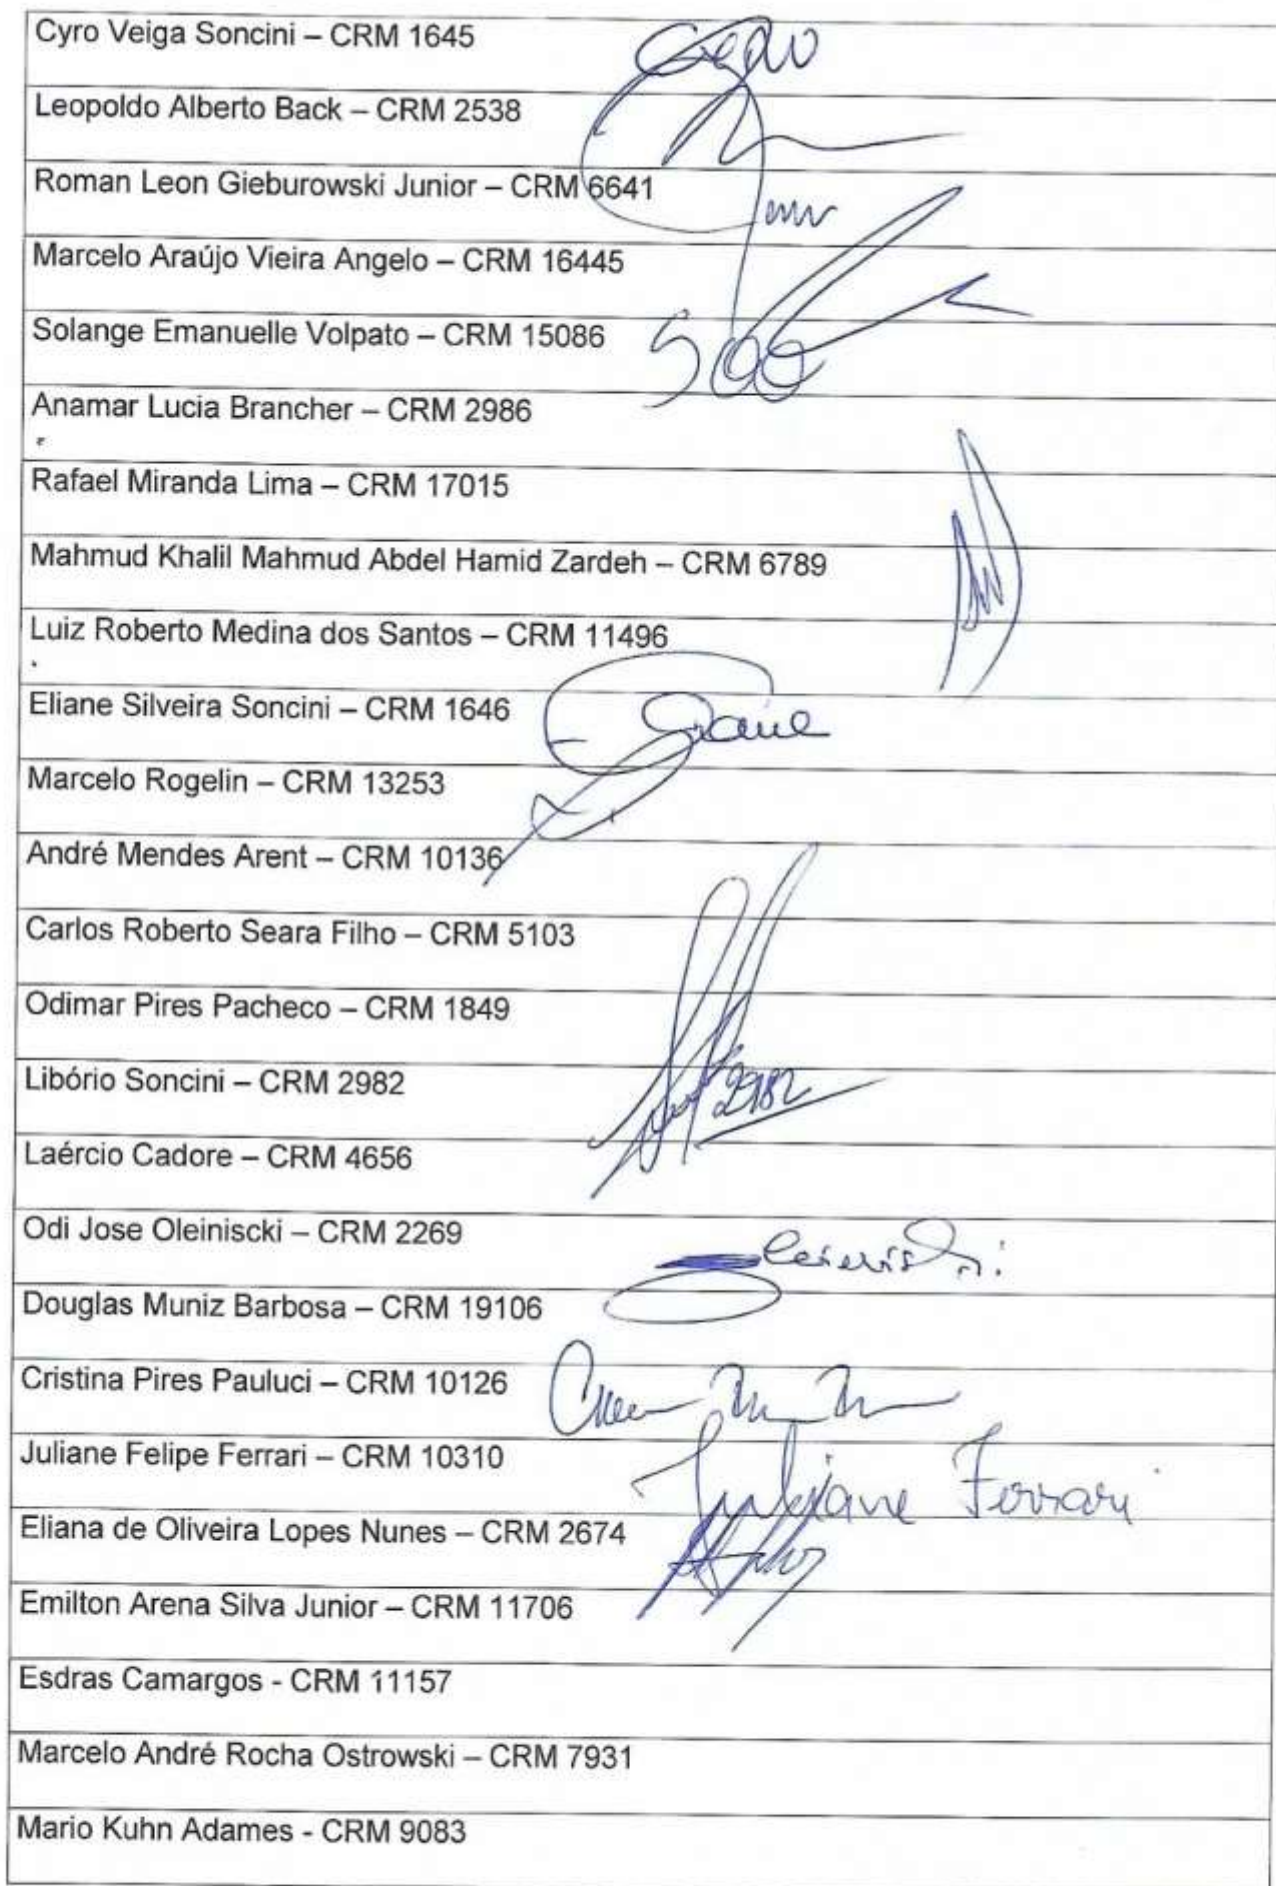 Cyro Veiga Soncini – CRM 1645
Leopoldo Alberto Back – CRM 2538
Roman Leon Gieburowski Junior – CRM 6641
Marcelo Araújo Vieira Angelo – CRM 16445
Solange Emanuelle Volpato – CRM 15086
Anamar Lucia Brancher – CRM 2986
Rafael Miranda Lima – CRM 17015
Mahmud Khalil Mahmud Abdel Hamid Zardeh – CRM 6789
Luiz Roberto Medina dos Santos – CRM 11496
Eliane Silveira Soncini – CRM 1646
Marcelo Rogelin – CRM 13253
André Mendes Arent – CRM 10136
Carlos Roberto Seara Filho – CRM 5103
Odimar Pires Pacheco – CRM 1849
Libório Soncini – CRM 2982
2982
Laércio Cadore – CRM 4656
Odi Jose Oleiniscki – CRM 2269
Douglas Muniz Barbosa – CRM 19106
Cristina Pires Pauluci – CRM 10126
Juliane Felipe Ferrari – CRM 10310
Juliane Ferrari
Eliana de Oliveira Lopes Nunes – CRM 2674
Emilton Arena Silva Junior – CRM 11706
Esdras Camargos - CRM 11157
Marcelo André Rocha Ostrowski – CRM 7931
Mario Kuhn Adames - CRM 9083